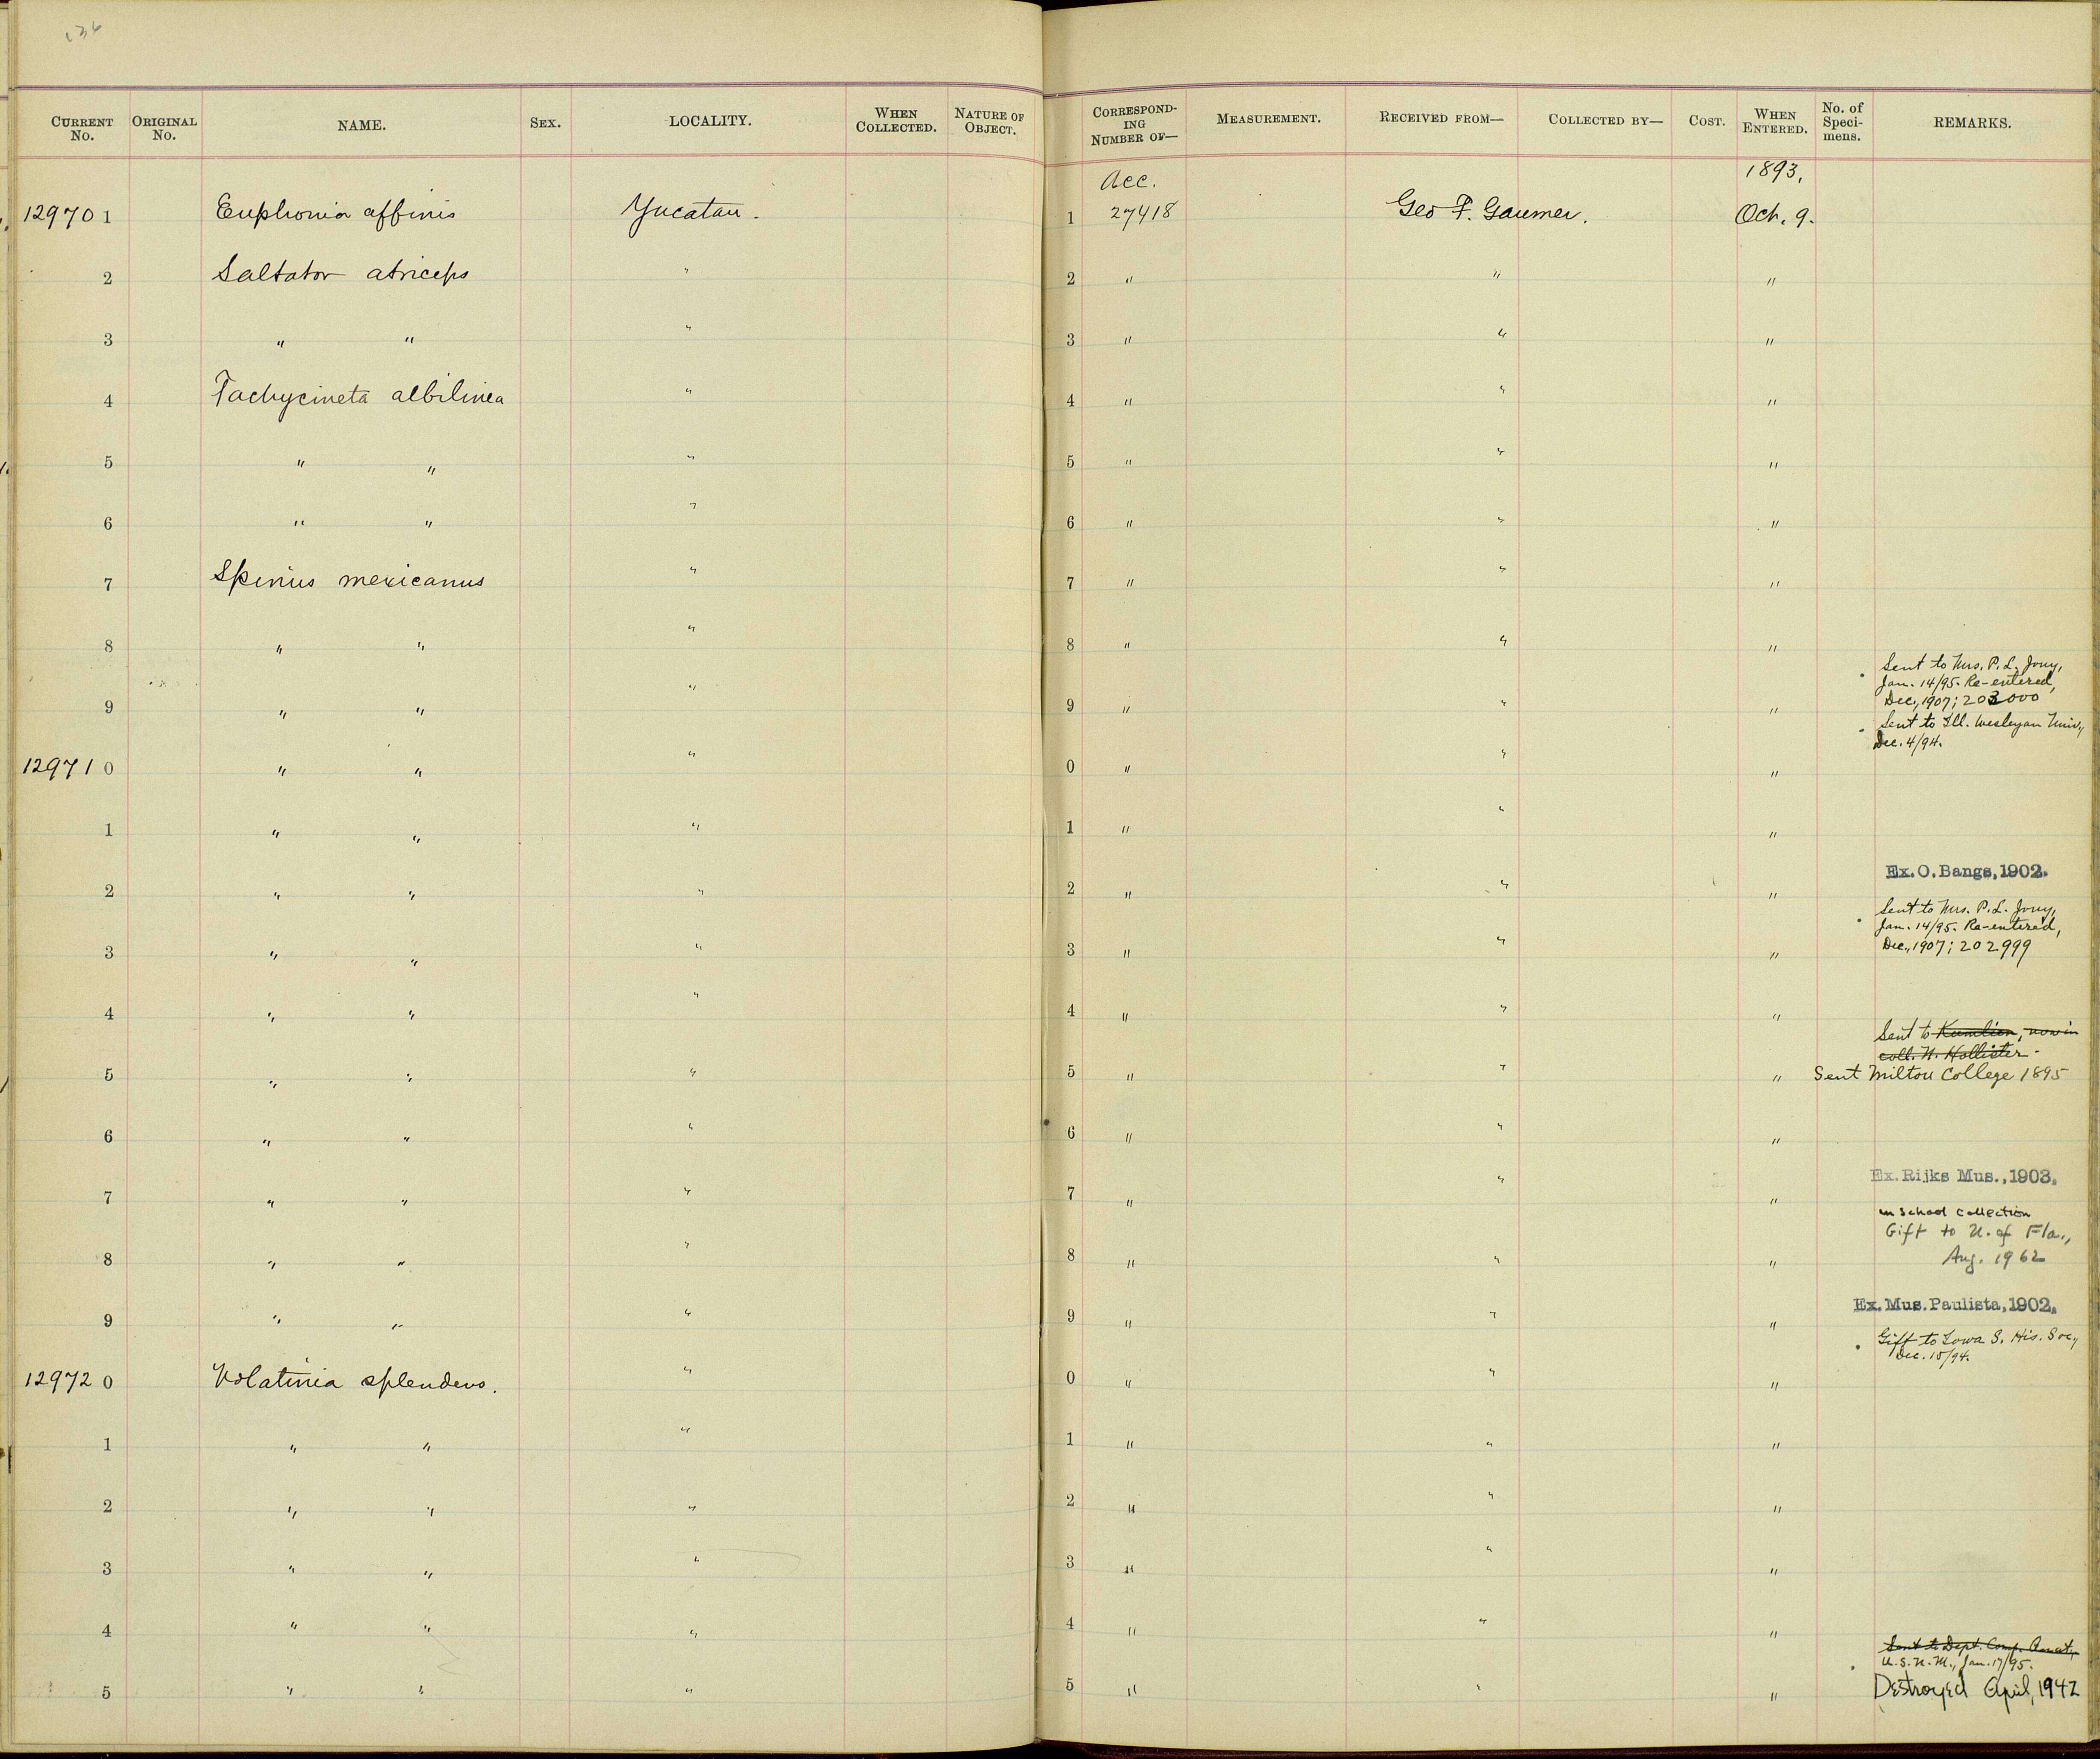 136
CURRENT No. ORIGINAL No. NAME. SEX. LOCALITY. WHEN COLLECTED. NATURE OF OBJECT. CORRESPONDING NUMBER OF— MEASUREMENT. RECEIVED FROM— COLLECTED BY— COST. WHEN ENTERED. No. of Specimens. REMARKS.
Acc. 1893.
129701 Euphonia affinis Yucatan. 1 27418 Geo F. Gaumer. Oct. 9.
2 Saltator atriceps " 2 " " "
3 " " " 3 " " "
4 Tachycineta albilinea " 4 " " "
5 " " " 5 " " "
6 " " " 6 " " "
7 Spinus mexicanus " 7 " " "
8 " " " 8 " " "
Sent to Mrs. P. L. Jouy,
Jan. 14/95. Re-entered,
9 " " " 9 " " " Dec., 1907; 203000
Sent to Ill. Wesleyan Univ.,
Dec. 4/94.
129710 " " " 0 " " "
1 " " " 1 " " "
Ex. O. Bangs, 1902.
2 " " " 2 " " "
Sent to Mrs. P. L. Jouy,
Jan. 14/95. Re-entered,
3 " " " 3 " " " Dec., 1907; 202999
4 " " " 4 " " "
Sent to Kumlien, now in
coll. N. Hollister.
5 " " " 5 " " " Sent Milton College 1895
6 " " " 6 " " "
Ex. Rijks Mus., 1903.
7 " " " 7 " " "
in School Collection
Gift to U. of Fla.,
8 " " " 8 " " " Aug. 1962
Ex. Mus. Paulista, 1902.
9 " " " 9 " " "
Gift to Iowa S. His. Soc.,
Dec. 15/94.
129720 Volatinia splendens. " 0 " " "
1 " " " 1 " " "
2 " " " 2 " " "
3 " " " 3 " " "
4 " " " 4 " " "
Sent to Dept. Comp. Anat.,
U.S.N.M., Jan. 17/95.
5 " " " 5 " " " Destroyed April, 1942